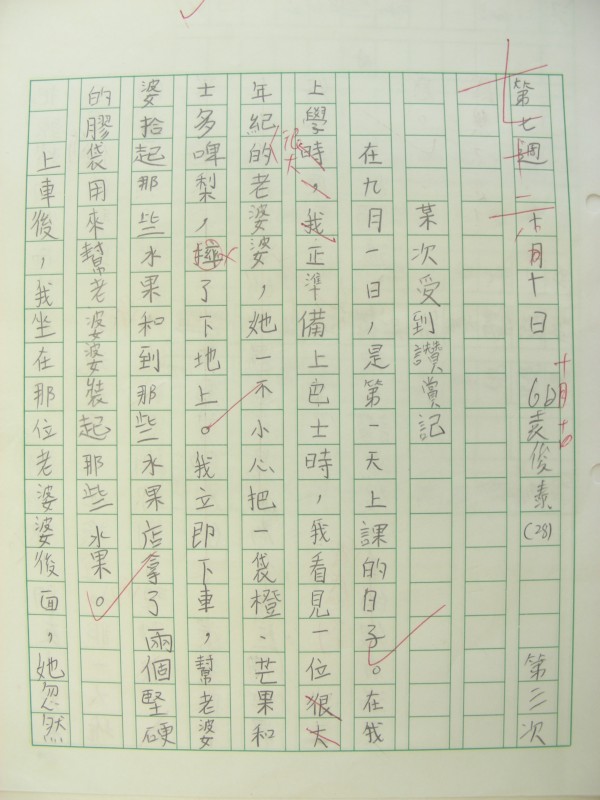 第七週 十月十日 6b 袁俊熹(28) 第三次
某次受到讚賞記
在九月一日，是第一天上課的日子。在我
上學時，我正準備上巴士時，我看見一位狠大
年紀的老婆婆，她一不小心把一袋橙、芒果和
士多啤梨，摔了下地上。我立即下車，幫老婆
婆拾起那些水果和到那些水果店拿了兩個堅硬
的膠袋用來幫老婆婆裝起那些水果。
上車後，我坐在那位老婆婆後面，她忽然